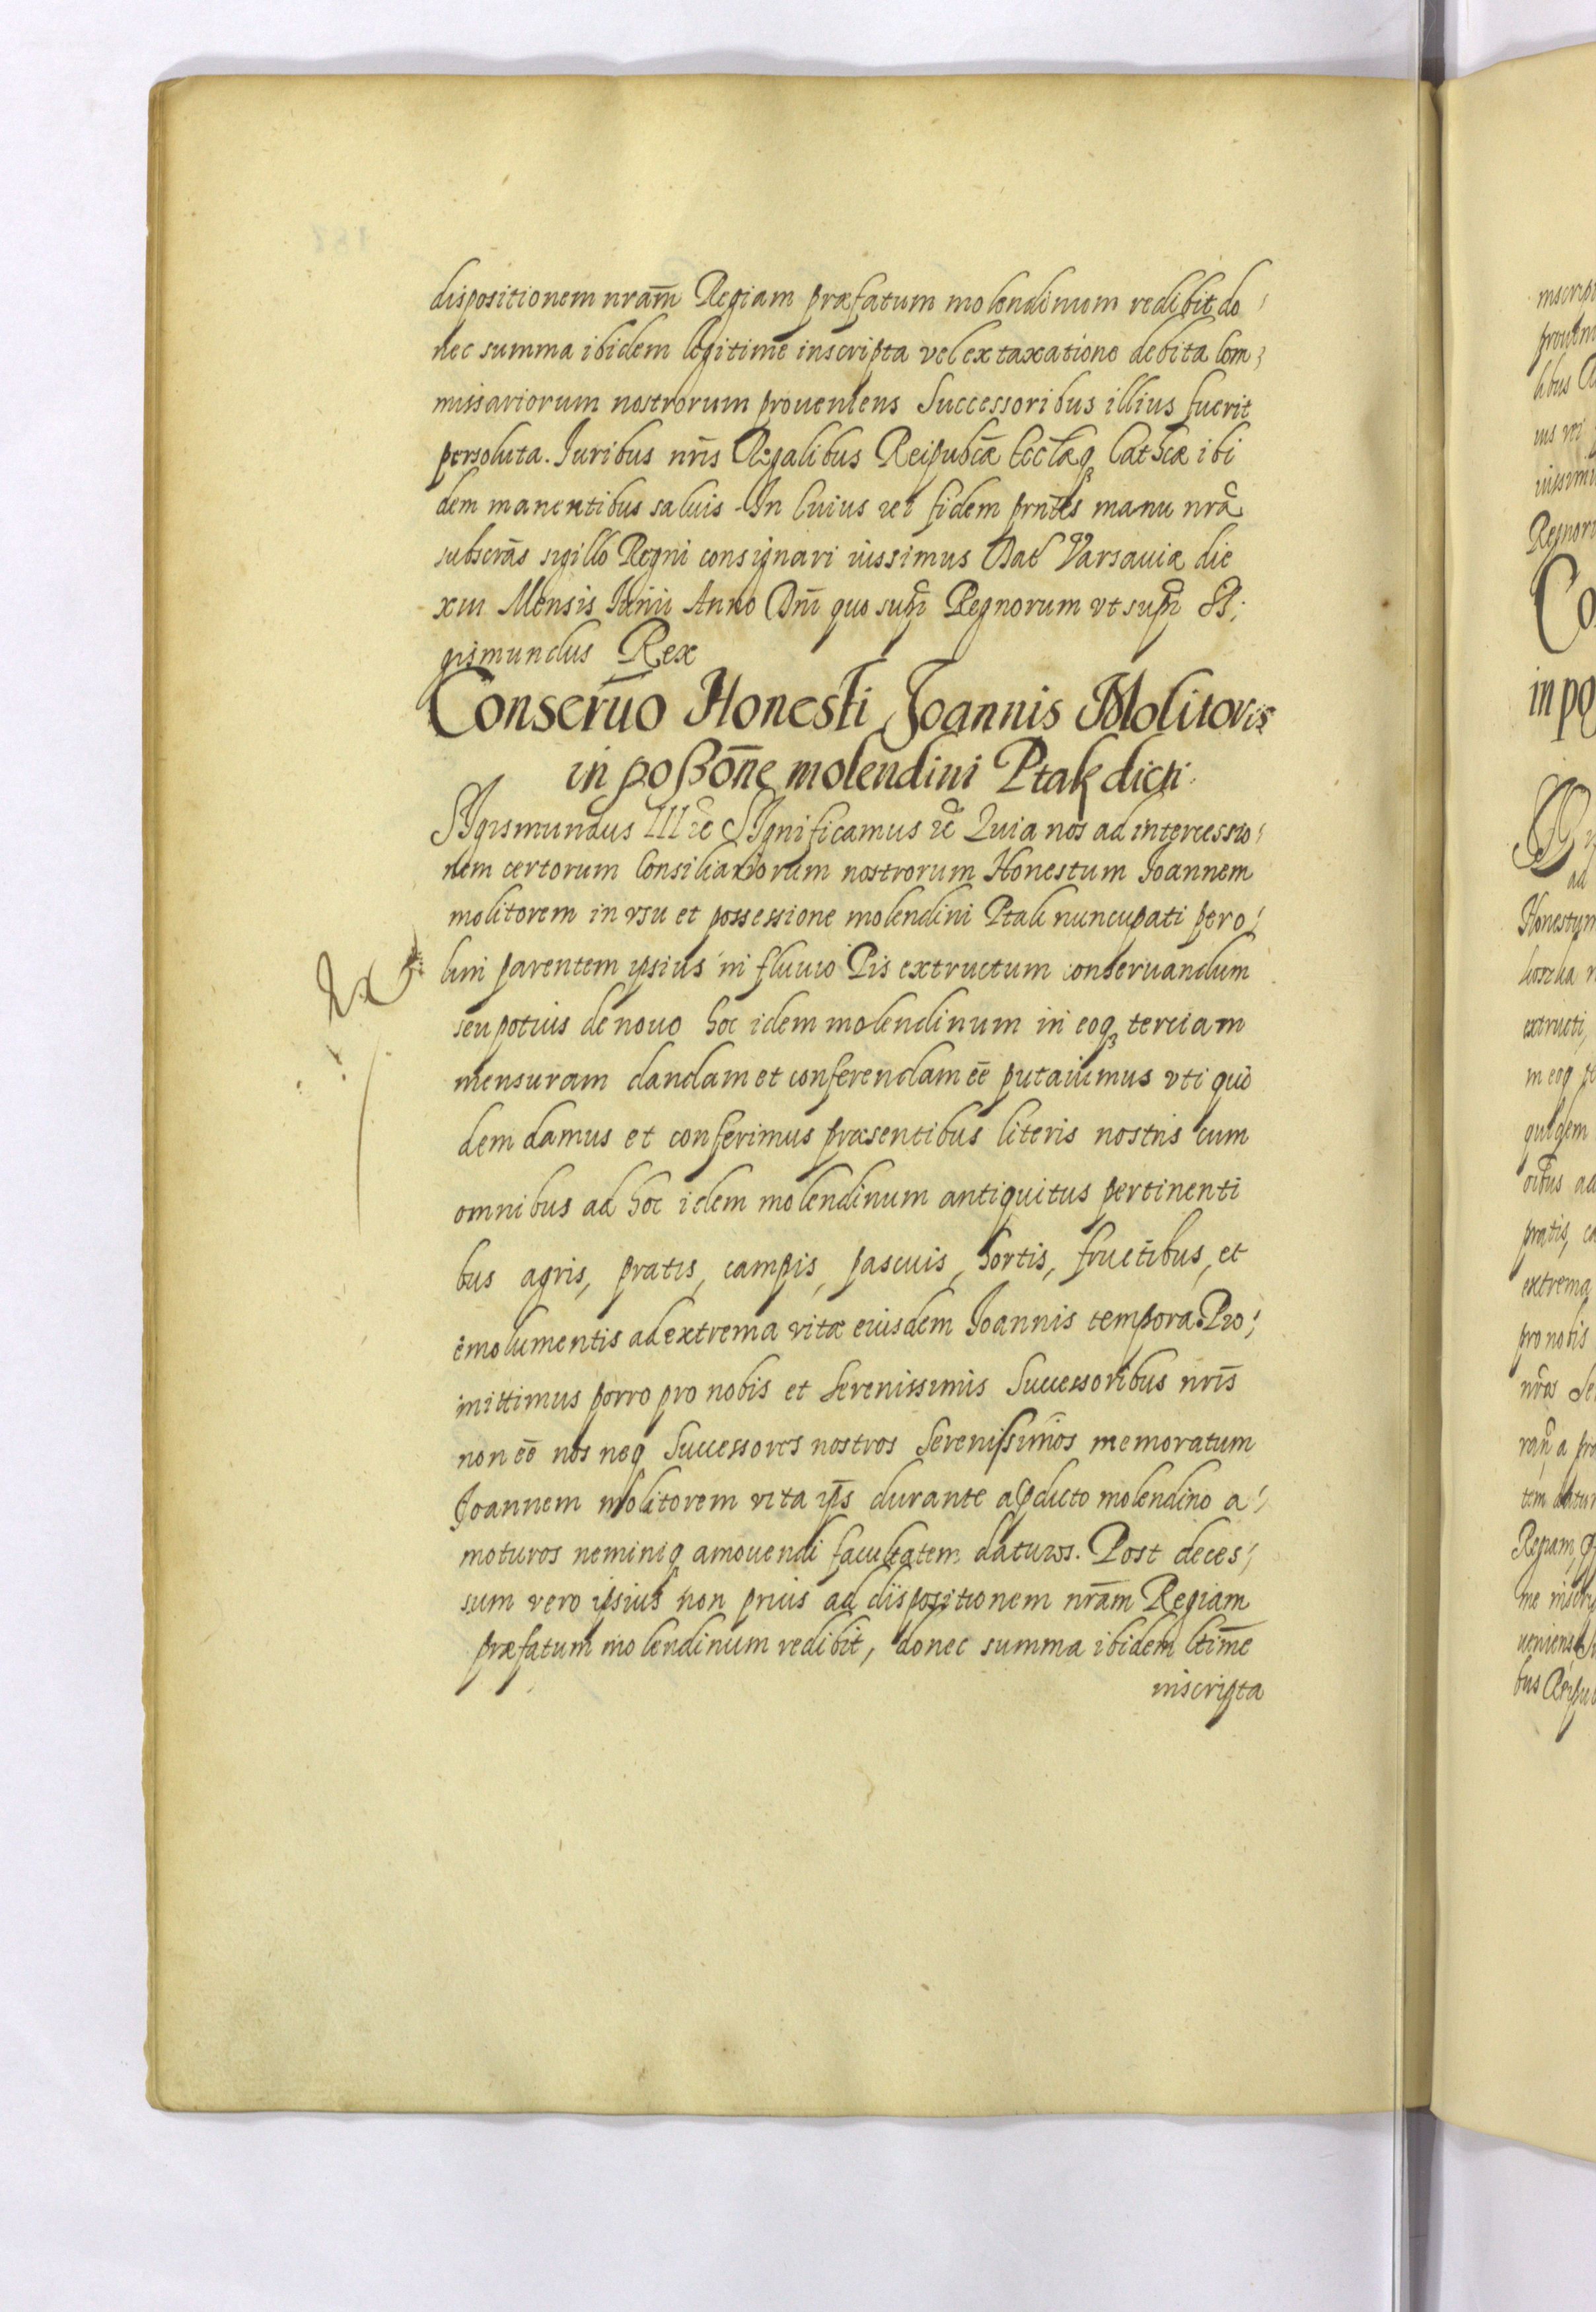 dispositionem nram̄ Regiam præfatum molendinum redibit do
nec summa ibidem legitime inscripta vel ex taxatione debita Com
missariorum nostrorum proueniens Successoribus illius fuerit
persoluta. Iuribus nrīs Regalibus Reipubcǣ Eccl̄æq3 Cathcæ ibi
dem manentibus saluis. In Cuius rei fidem prntēs manu nrā
subscrās sigillo Regni consignari iussimus Dat Varsauiæ die
xiii Mensis Iunii Anno Dnī quo supra Regnorum vt supra Si
gismundus Rex
Conseruō Honesti Joannis Molitoris
in poßōne molendini Ptak dicti
SIgismundus III etc SIgnificamus etc Quia nos ad intercessio
nem certorum Consiliariorum nostrorum Honestum Joannem
molitorem in vsu et possessione molendini Ptak nuncupati per o
lim parentem ipsius in fluuio Pis extructum conseruandum
seu potius de nouo hoc idem molendinum in eoq3 terciam
mensuram dandam et conferendam eē putauimus vti qui
dem damus et conferimus præsentibus literis nostris cum
omnibus ad hoc idem molendinum antiquitus pertinenti
bus agris, pratis, campis, pascuis, hortis, fructibus, et
emolumentis ad extrema vitæ eiusdem Joannis tempora. Pro
mittimus porro pro nobis et Serenissimis Successoribus nrīs
non eē nos neq3 Successores nostros Serenissimos memoratum
Joannem molitorem vita ipīs durante a pdicto molendino a
moturos neminiq3 amouendi facultatem daturos. Post deces
sum vero ipsius non prius ad dispositionem nrām Regiam
præfatum molendinum redibit, donec summa ibidem ltimē
inscripta